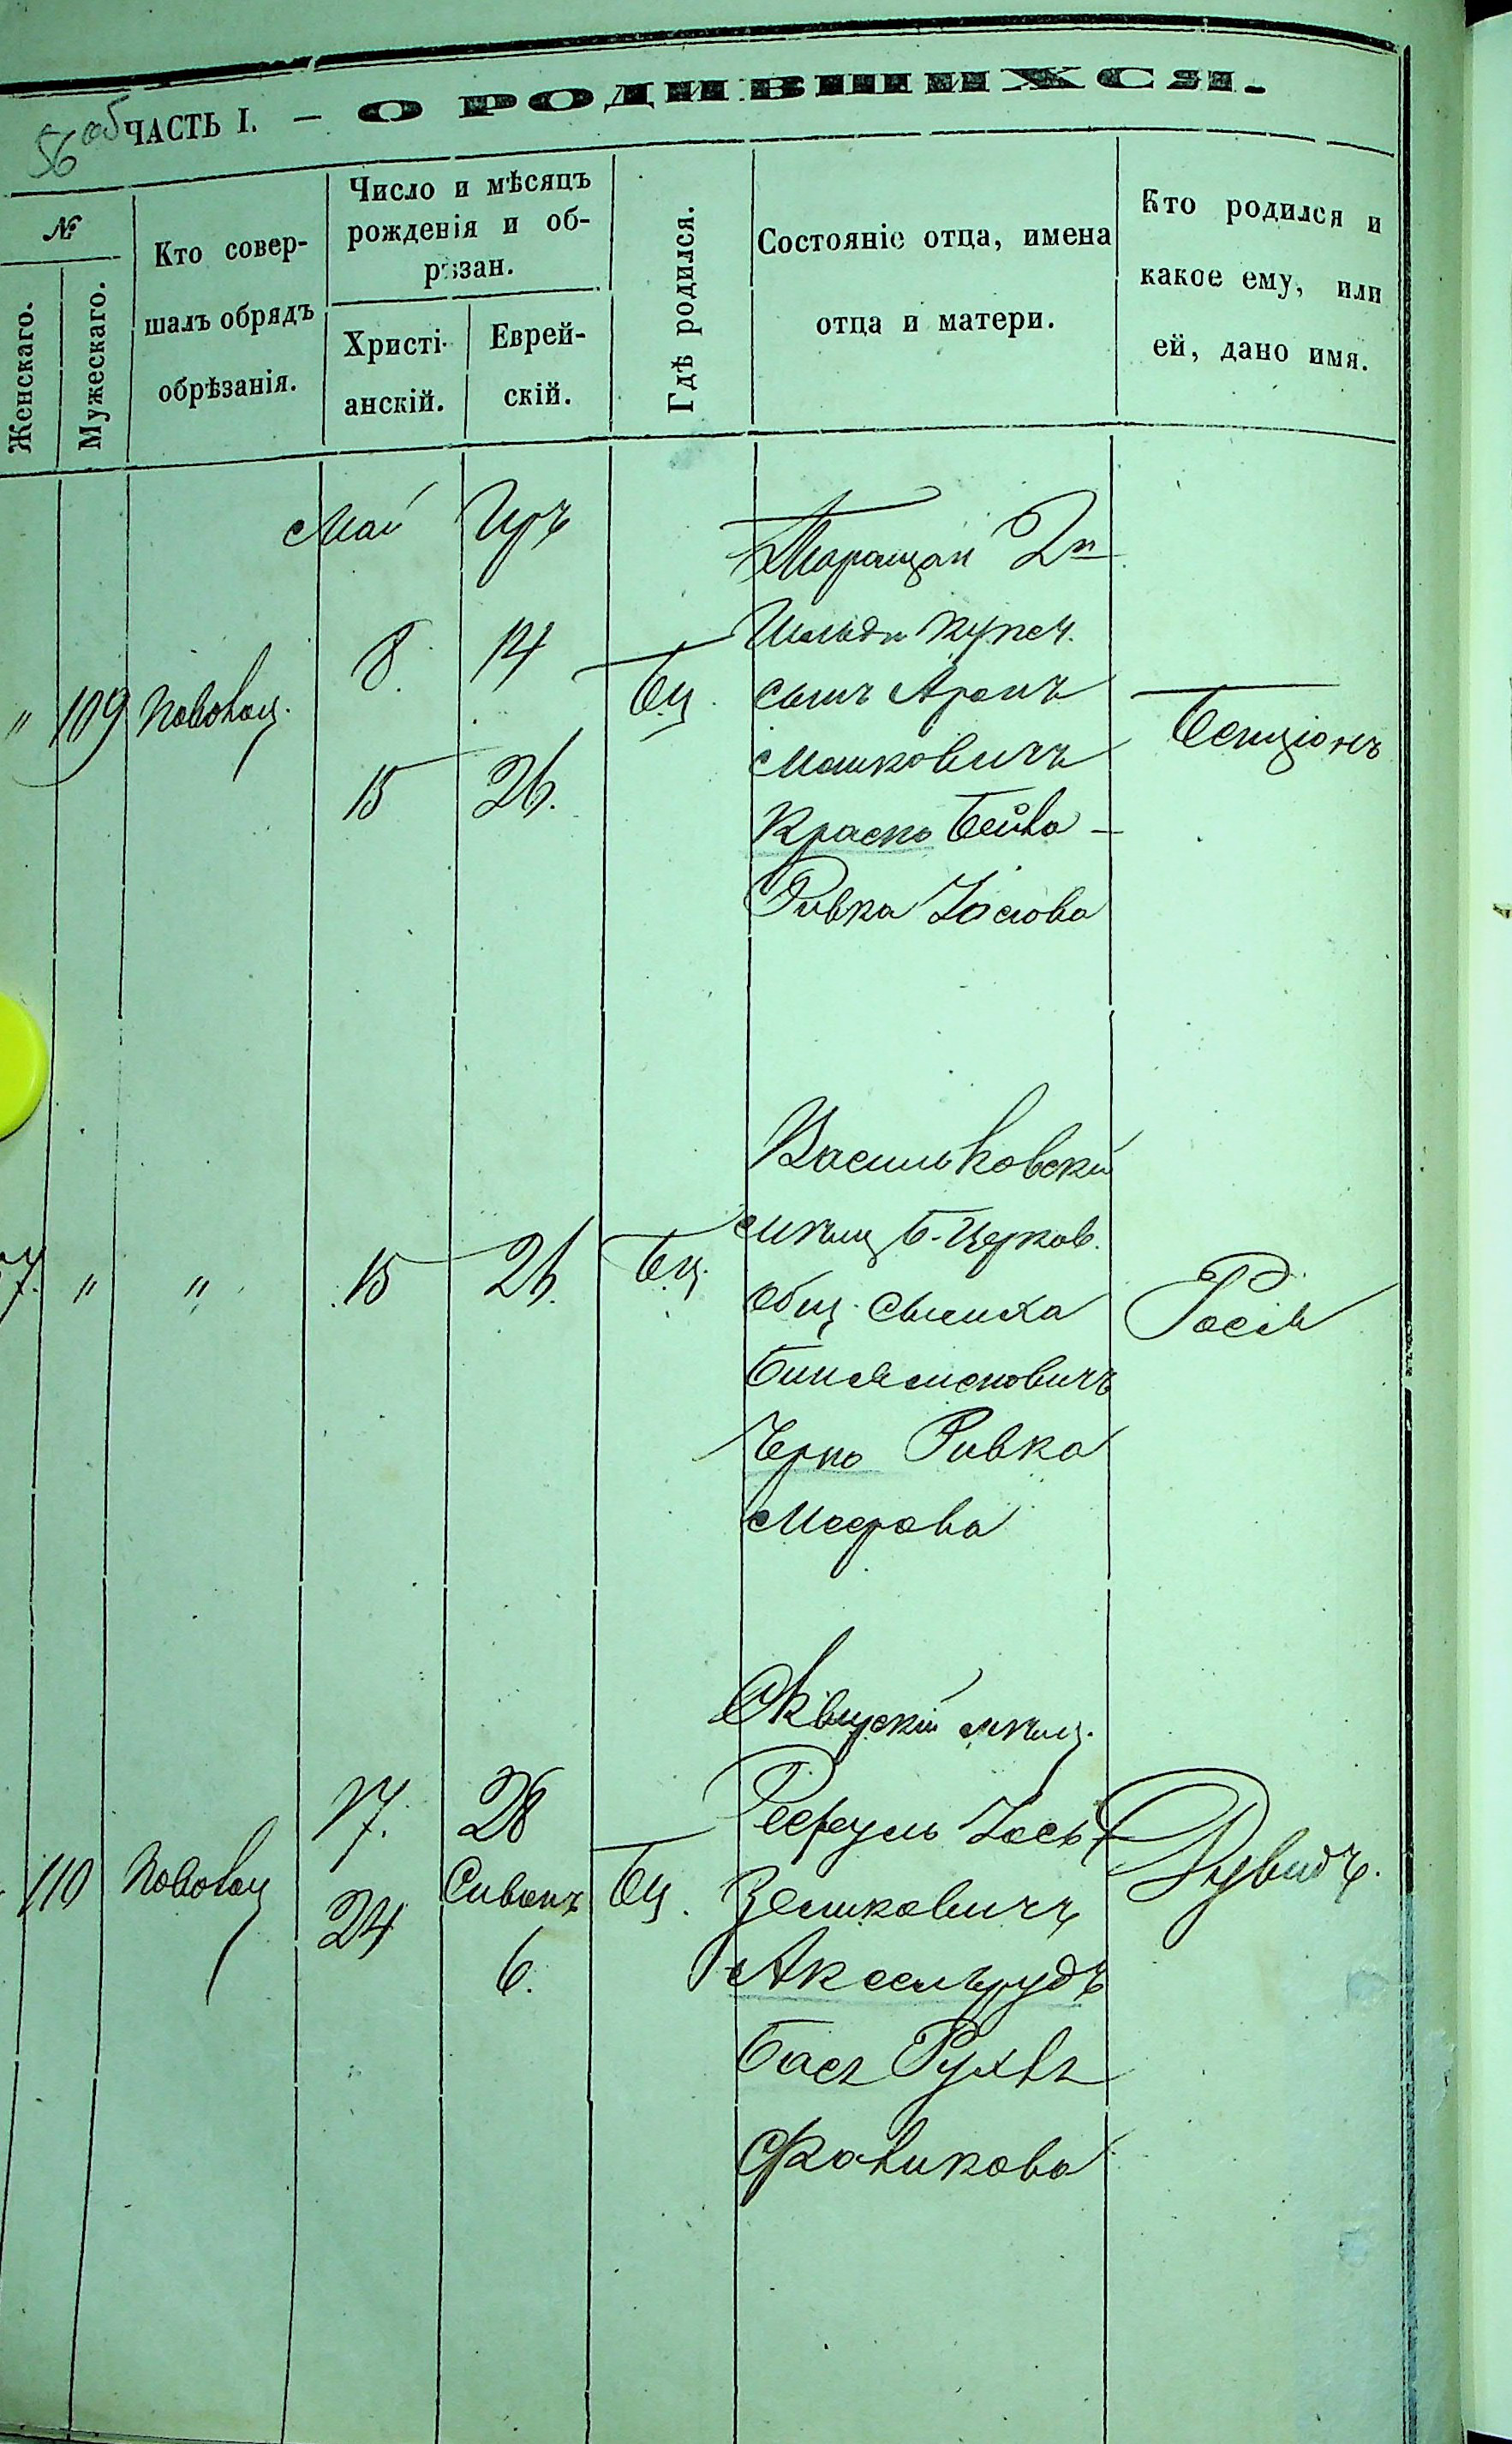 56 об
ЧАСТЬ I. — О РОДИВШИХСЯ.
№
Женскаго.
Мужескаго.
Кто совер-
шалъ обрядъ
обрѣзанія.
Число и мѣсяцъ
рожденія и об-
рѣзан.
Христі-
анскій.
Еврей-
скій.
Гдѣ родился.
Состояніе отца, имена
отца и матери.
Кто родился и
какое ему, или
ей, дано имя.
Май Іръ
" 109
8. 14
15 26.
Бц.
Таращан 2й
Гильди купеч.
сынъ Аронъ
Мошковичъ
Красно Бейла -
Ривка Іосіова
Бенціонъ
7. " "
15 26. Бц.
Васильковскій
мѣщ Б.-Церков.
Общ. Сымха
Биньяминовичъ
Черно Ривка
Меерова
Росія
110
17. 28
24 Сиванъ
6.
Бц.
Сквирскій мѣщ.
Рефуль Іось
Зельковичъ
Аксельрудъ
Бася Рухля
Файвикова
Дувидъ.